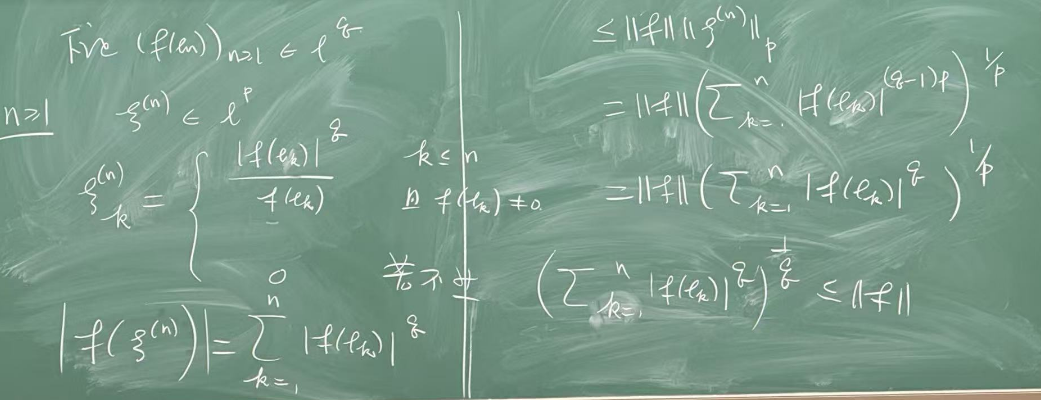 下证 (f(e_n))_{n≥1} ∈ ℓ^q
n≥1 ξ^{(n)} ∈ ℓ^p
ξ_k^{(n)} = { |f(e_k)|^q / f(e_k) k≤n 且 f(e_k) ≠ 0
0 若不然
|f(ξ^{(n)})| = ∑_{k=1}^n |f(e_k)|^q
≤ ||f|| ||ξ^{(n)}||_p
= ||f|| (∑_{k=1}^n |f(e_k)|^{(q-1)p})^{1/p}
= ||f|| (∑_{k=1}^n |f(e_k)|^q)^{1/p}
(∑_{k=1}^n |f(e_k)|^q)^{1/q} ≤ ||f||